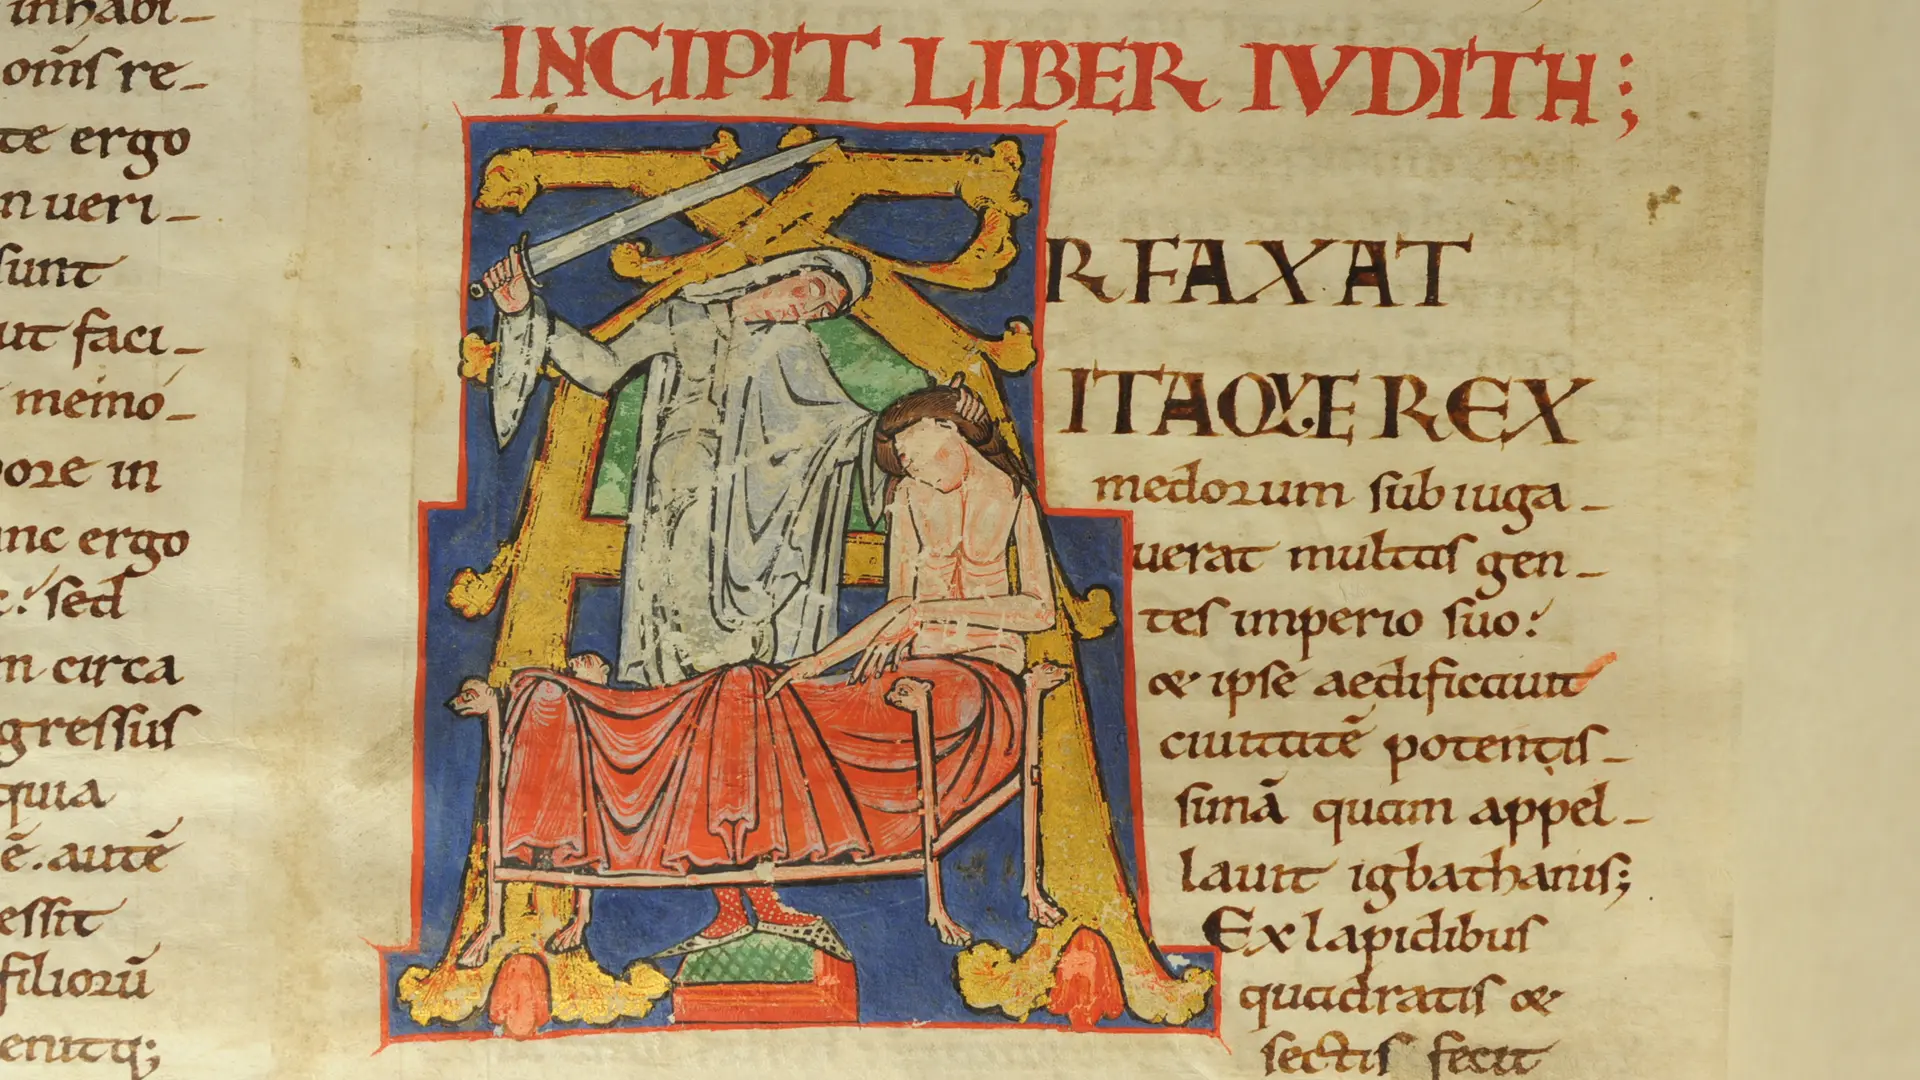 inhabi-
om̄s re-
te ergo
n ueri-
sunt
ut faci-
memo-
pore in
unc ergo
: sed
m circa
gressus
quia
ē. autē
essit
filiorū
INCIPIT LIBER IVDITH;
A
RFAXAT
ITAQVE REX
medorum subiuga-
uerat multas gen-
tes imperio suo:
& ipse aedificauit
ciuitatē potentis-
simā quam appel-
lauit igbathanis;
Ex lapidibus
quadratis &
sectis fecit